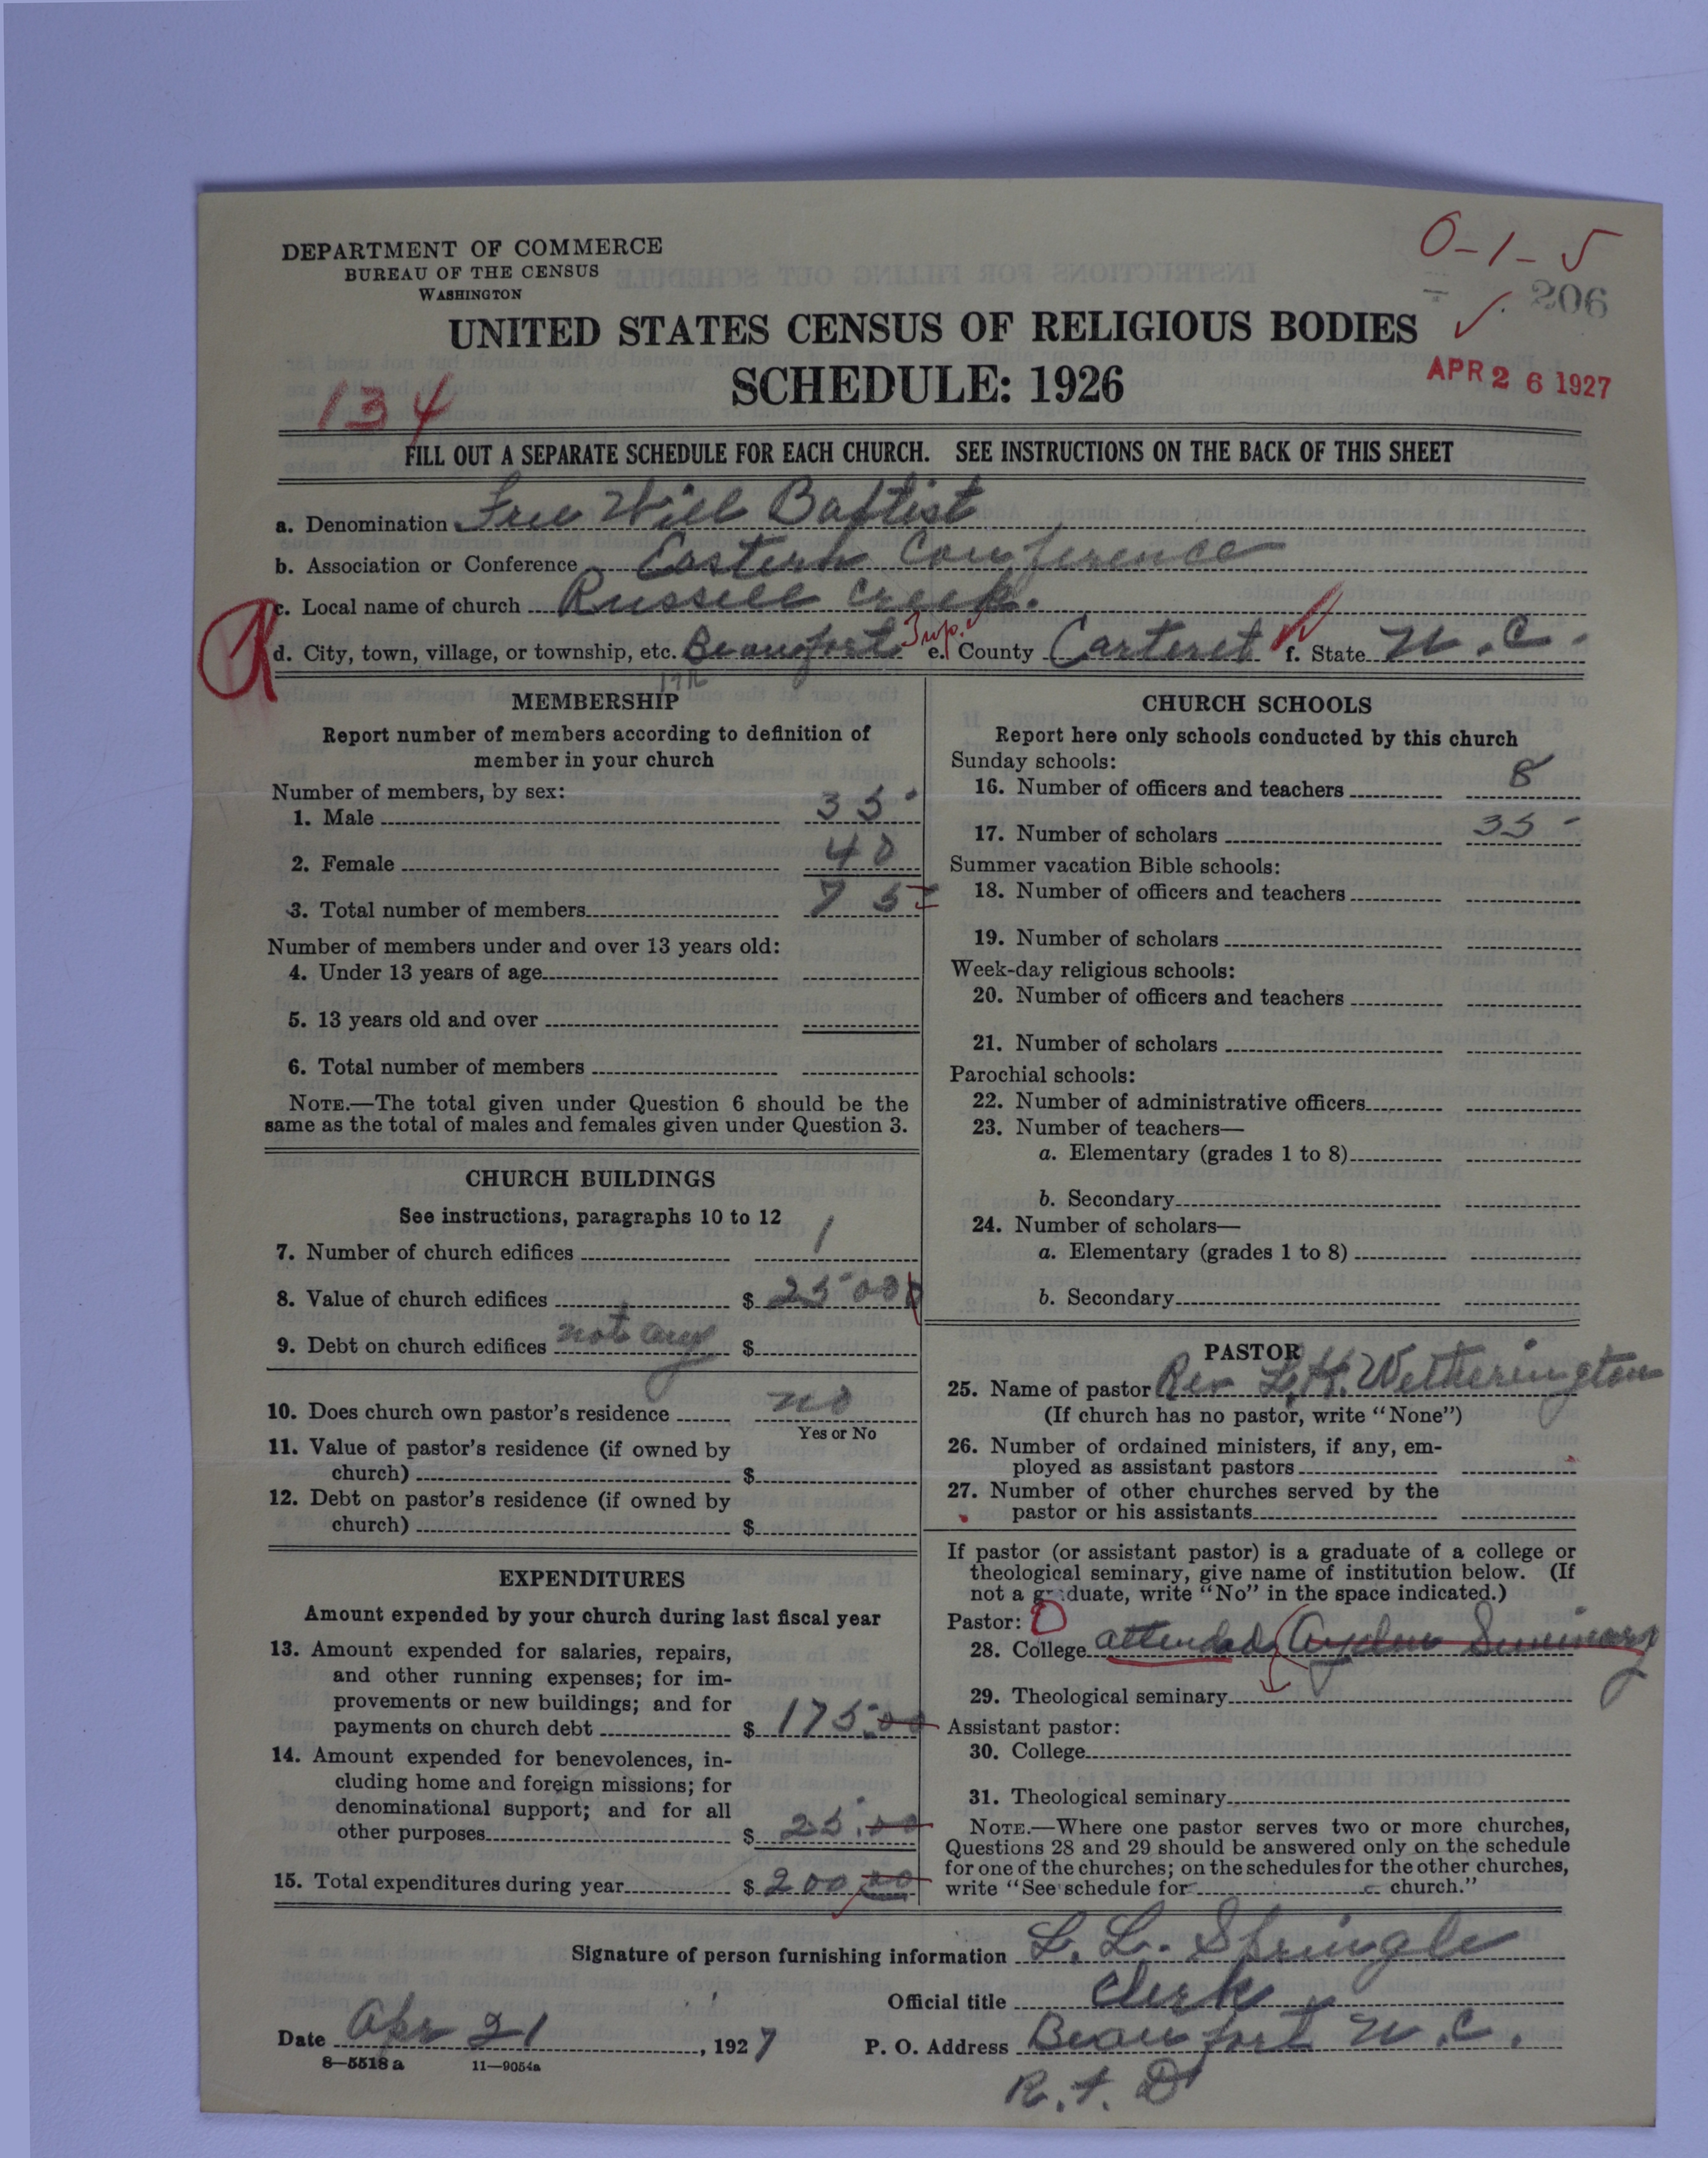 DEPARTMENT OF COMMERCE
BUREAU OF THE CENSUS
WASHINGTON
0-1-5
206
UNITED STATES CENSUS OF RELIGIOUS BODIES
SCHEDULE: 1926
APR 26 1927
134
FILL OUT A SEPARATE SCHEDULE FOR EACH CHURCH. SEE INSTRUCTIONS ON THE BACK OF THIS SHEET
a. Denomination Free Will Baptist
b. Association or Conference Eastern Conference
c. Local name of church Russell Creek.
d. City, town, village, or township, etc. Beaufort e. County Carteret f. State N.C.
MEMBERSHIP
Report number of members according to definition of
member in your church
Number of members, by sex:
1. Male 35
2. Female 40
3. Total number of members 75
Number of members under and over 13 years old:
4. Under 13 years of age
5. 13 years old and over
6. Total number of members
NOTE.—The total given under Question 6 should be the
same as the total of males and females given under Question 3.
CHURCH BUILDINGS
See instructions, paragraphs 10 to 12
7. Number of church edifices 1
8. Value of church edifices $ 2500
9. Debt on church edifices not any $
10. Does church own pastor's residence no
Yes or No
11. Value of pastor's residence (if owned by
church) $
12. Debt on pastor's residence (if owned by
church) $
EXPENDITURES
Amount expended by your church during last fiscal year
13. Amount expended for salaries, repairs,
and other running expenses; for im-
provements or new buildings; and for
payments on church debt $ 175.00
14. Amount expended for benevolences, in-
cluding home and foreign missions; for
denominational support; and for all
other purposes $ 25.00
15. Total expenditures during year $ 200.00
CHURCH SCHOOLS
Report here only schools conducted by this church
Sunday schools:
16. Number of officers and teachers 8
17. Number of scholars 35
Summer vacation Bible schools:
18. Number of officers and teachers
19. Number of scholars
Week-day religious schools:
20. Number of officers and teachers
21. Number of scholars
Parochial schools:
22. Number of administrative officers
23. Number of teachers—
a. Elementary (grades 1 to 8)
b. Secondary
24. Number of scholars—
a. Elementary (grades 1 to 8)
b. Secondary
PASTOR
25. Name of pastor Rev L.H. Wetherington
(If church has no pastor, write "None")
26. Number of ordained ministers, if any, em-
ployed as assistant pastors
27. Number of other churches served by the
pastor or his assistants
If pastor (or assistant pastor) is a graduate of a college or
theological seminary, give name of institution below. (If
not a graduate, write "No" in the space indicated.)
Pastor: 0
28. College attended Ayden Seminary
29. Theological seminary
Assistant pastor:
30. College
31. Theological seminary
NOTE.—Where one pastor serves two or more churches,
Questions 28 and 29 should be answered only on the schedule
for one of the churches; on the schedules for the other churches,
write "See schedule for church."
Signature of person furnishing information L. L. Springle
Official title Clerk
Date Apr 21, 1927 P. O. Address Beaufort N.C.
R.F.D
8—5518 a 11—9054a